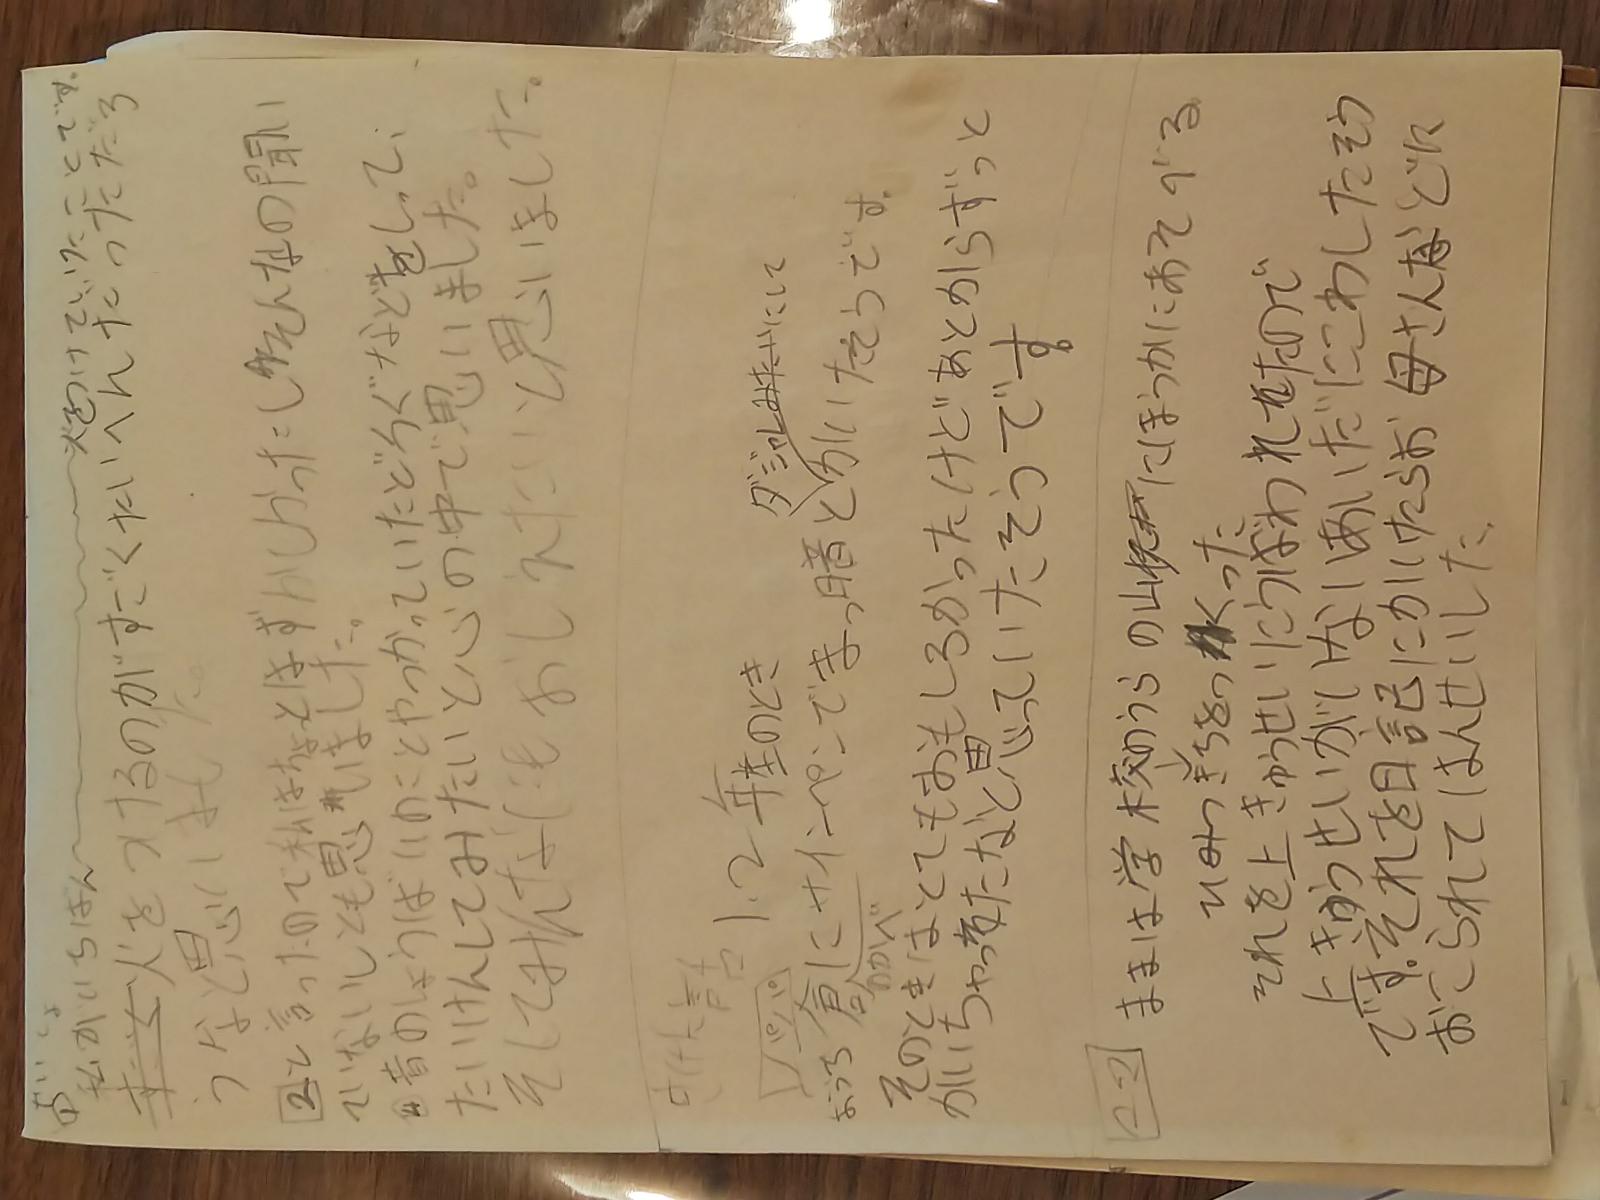 さいしょ
私がいちばん 火をつけていたことです。
火をつけるのがすごくたいへんだっただろ
うなと思いました。
2 と言ったので私はちょとはずかしかったしみんなの聞い
ていないしとも思いました。
昔のしょうばいのことやつかっていたどうぐなどをしって、
たいけんしてみたいと心の中で思いました。
そしてみんなにもおしえたいと思いました。
うけた話 1.2年生のとき
パパ
ダジャレみたいにして
おうち倉にサインペンでまっ暗とかいたそうです。
のかべ
そのときはとてもおもしろかったけどあとからずっと
かいちゃったなと思っていたそうです
ママ
ままは学校のうらの山にほうかにあそびでる
ひみつきちをつくった
それを上きゅうせいにうばわれたので
上きゅうせいがいないあいだにこわしたそう
です。それを日記にかいたらお母さんなどに
おこられてはんせいした。